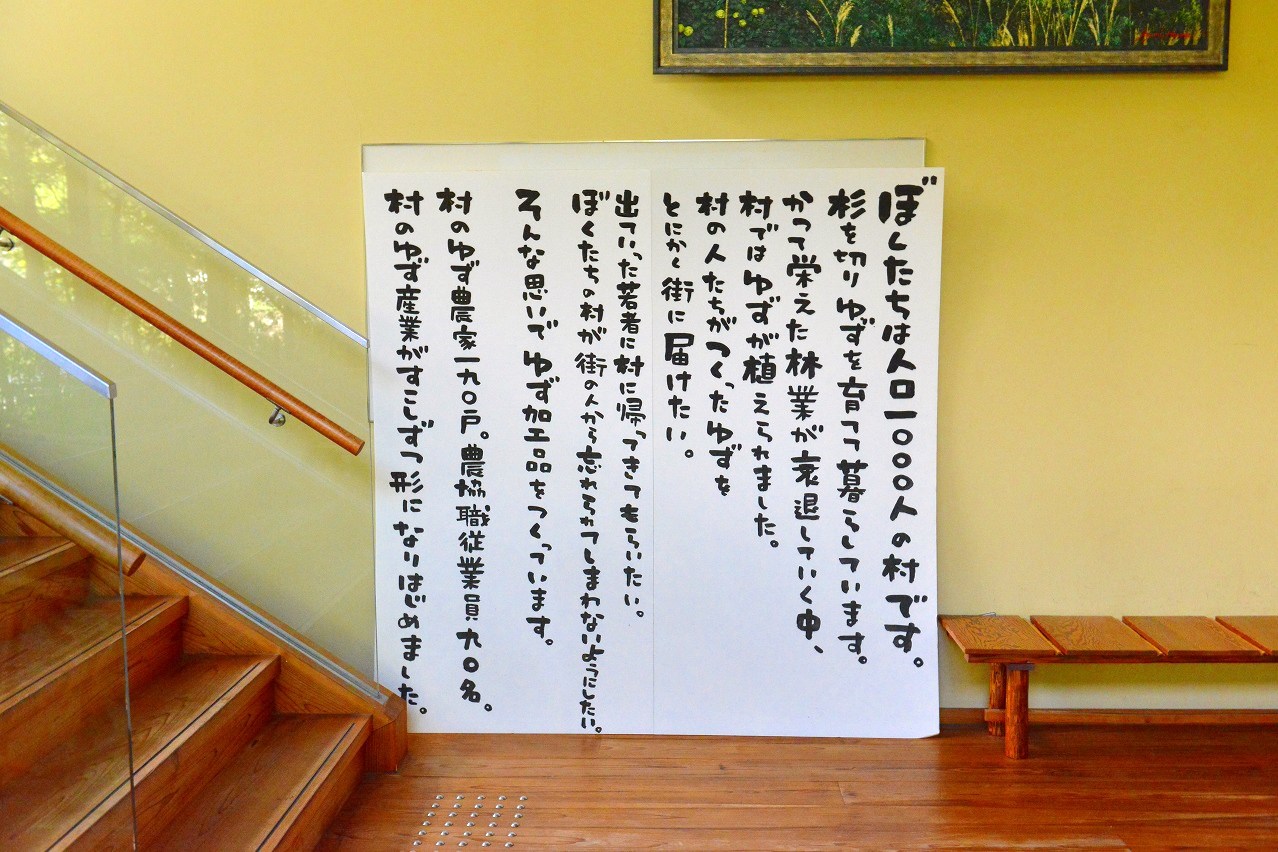 ぼくたちは人口一〇〇〇人の村です。
杉を切りゆずを育てて暮らしています。
かつて栄えた林業が衰退していく中、
村ではゆずが植えられました。
村の人たちがつくったゆずを
とにかく街に届けたい。
出ていった若者に村に帰ってきてもらいたい。
ぼくたちの村が街の人から忘れられてしまわないようにしたい。
そんな思いでゆず加工品をつくっています。
村のゆず農家一九〇戸。農協職従業員九〇名。
村のゆず産業がすこしずつ形になりはじめました。